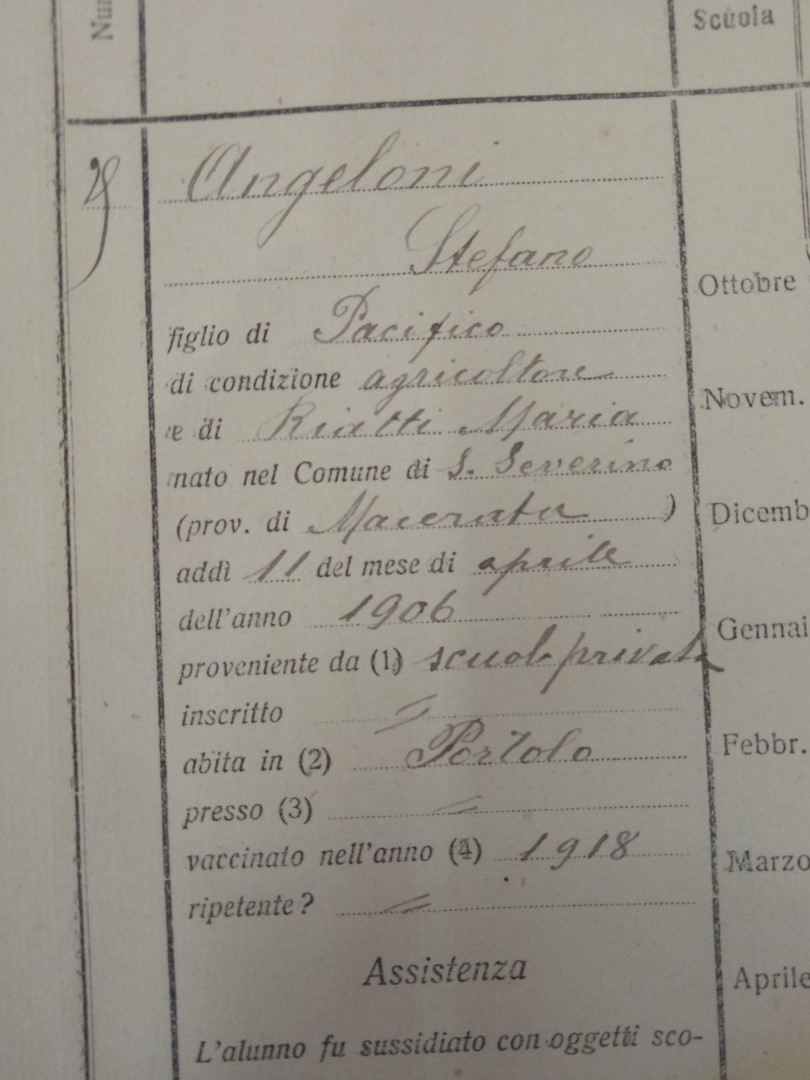 Scuola
Angeloni
Stefano
figlio di Pacifico
di condizione agricoltore
e di Riatti Maria
nato nel Comune di S. Severino
(prov. di Macerata)
addì 11 del mese di aprile
dell'anno 1906
proveniente da (1) scuola privata
inscritto =
abita in (2) Portolo
presso (3) =
vaccinato nell'anno (4) 1918
ripetente? =
Assistenza
L'alunno fu sussidiato con oggetti sco-
Ottobre
Novem.
Dicemb
Gennai
Febbr.
Marzo
Aprile